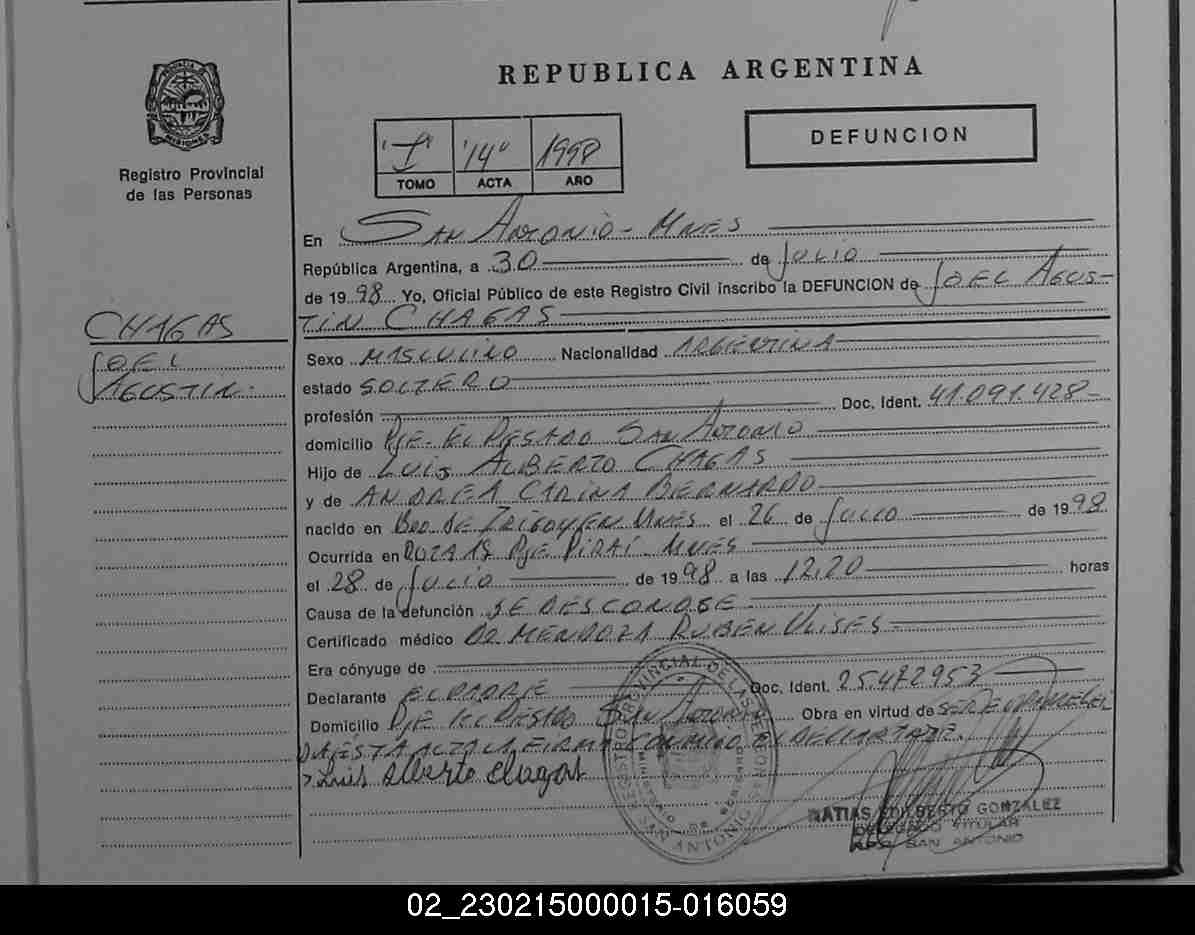 REPUBLICA ARGENTINA
PROVINCIA DE
MISIONES
Registro Provincial
de las Personas
"I" "14" 1998
TOMO ACTA AÑO
DEFUNCION
En San Antonio - Mnes
República Argentina, a 30 de Julio
de 1998 Yo, Oficial Público de este Registro Civil inscribo la DEFUNCION de Joel Agus-
tin Chagas
CHAGAS
JOEL
AGUSTIN.
Sexo masculino Nacionalidad Argentina
estado soltero
profesión Doc. Ident. 41.091.428-
domicilio Pje. El Pesado San Antonio
Hijo de Luis Alberto Chagas
y de Andrea Carina Bernardo
nacido en Bdo de Irigoyen Mnes el 26 de Julio de 1998
Ocurrida en Roza 18 Pje Pirai - Mnes
el 28 de Julio de 1998 a las 12.20 horas
Causa de la defunción se desconose.
Certificado médico Dr Mendoza Ruben Ulises-
Era cónyuge de
Declarante el padre Doc. Ident. 25.472953
Domicilio Pje El Pesado San Antonio Obra en virtud de ser
esta acta la firma conmigo el declarante.
Luis Alberto Chagas
REGISTRO PROVINCIAL DE LAS PERSONAS
MINISTERIO DE GOBIERNO
SAN ANTONIO
MATIAS EDILBERTO GONZALEZ
DELEGADO TITULAR
SAN ANTONIO
02_230215000015-016059